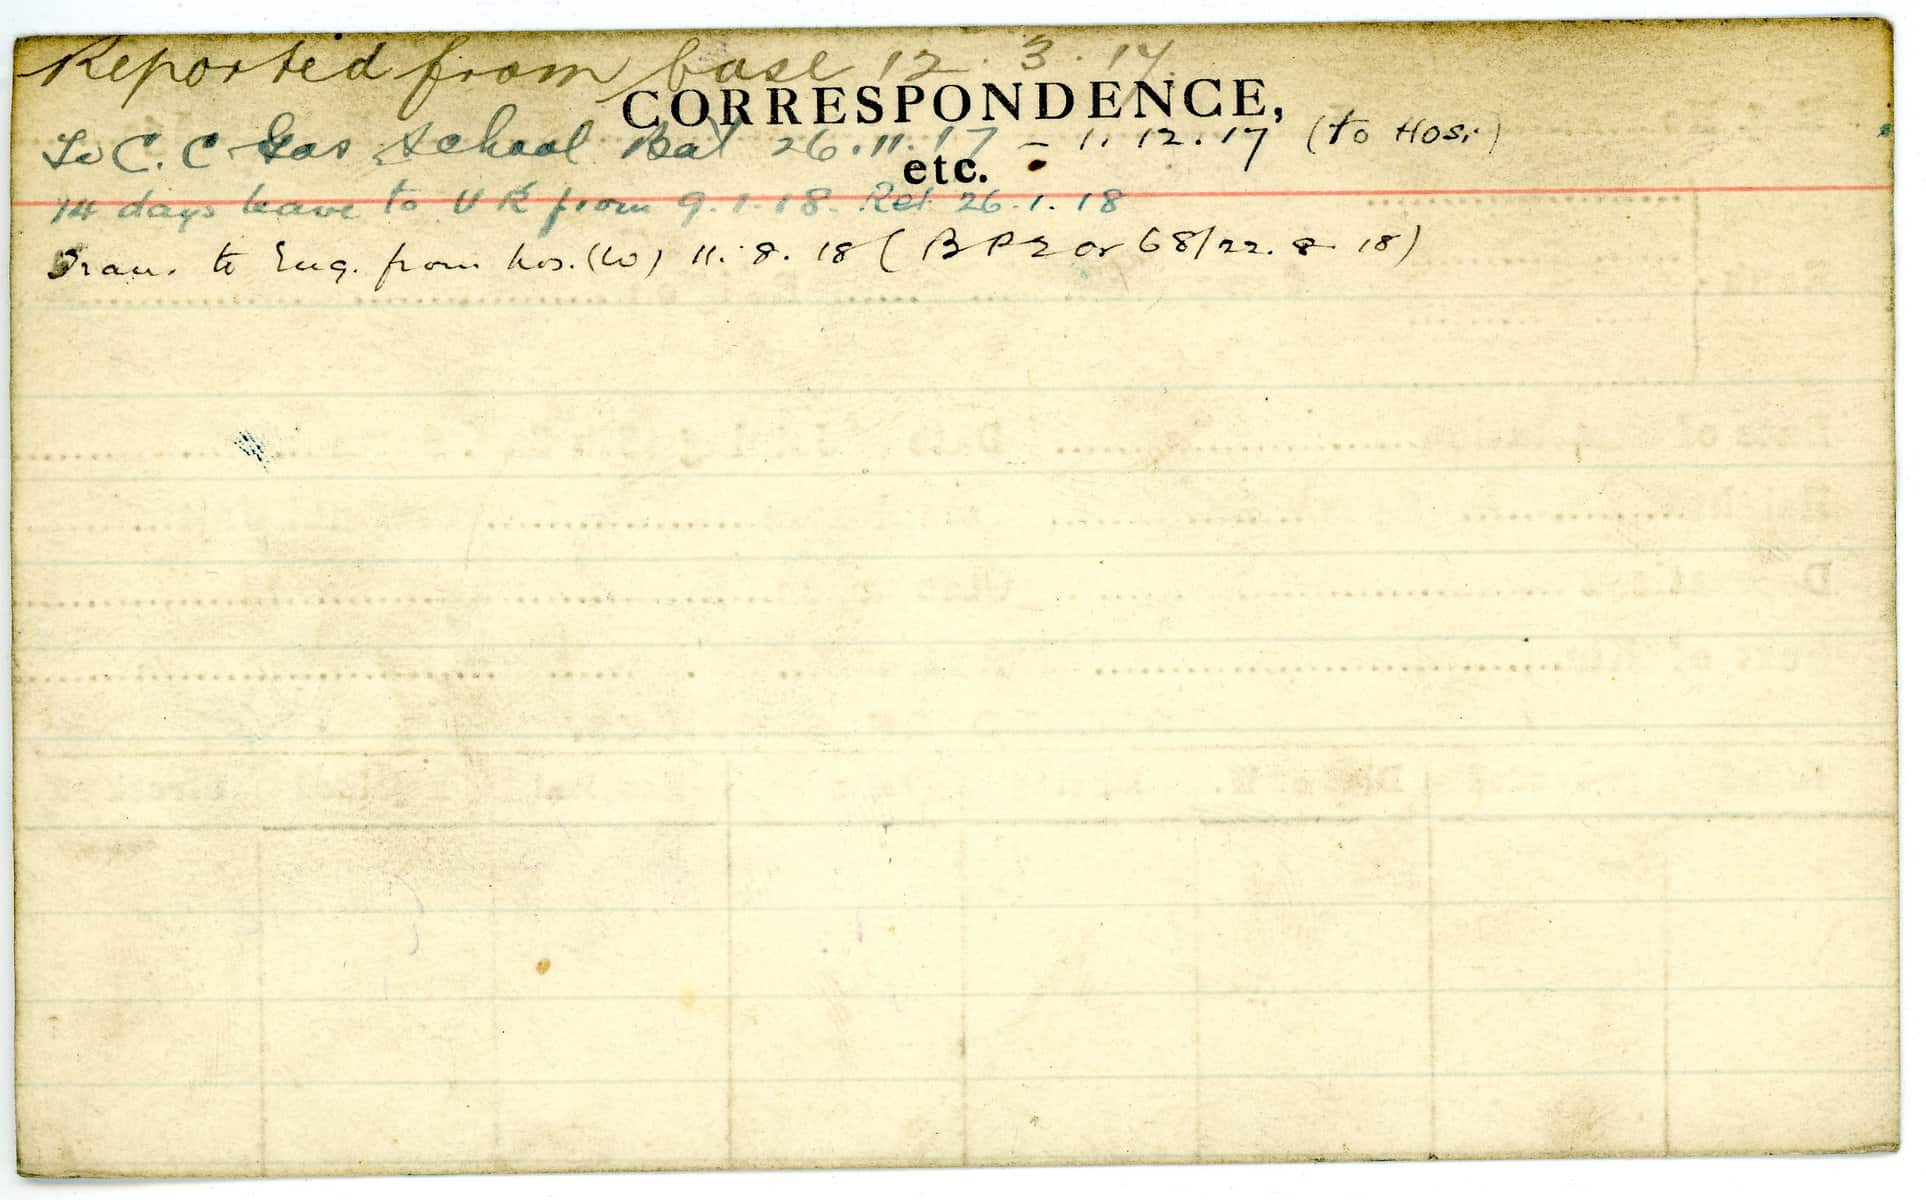 Reported from base 12.3.17.
CORRESPONDENCE,
To C.C. Gas School Bat 26.11.17 - 1.12.17 (to Hos.)
etc.
14 days leave to UK from 9.1.18. Ret 26.1.18
Tran. to Eng. from hos. (W) 11.8.18 ( or 68/22.8.18)